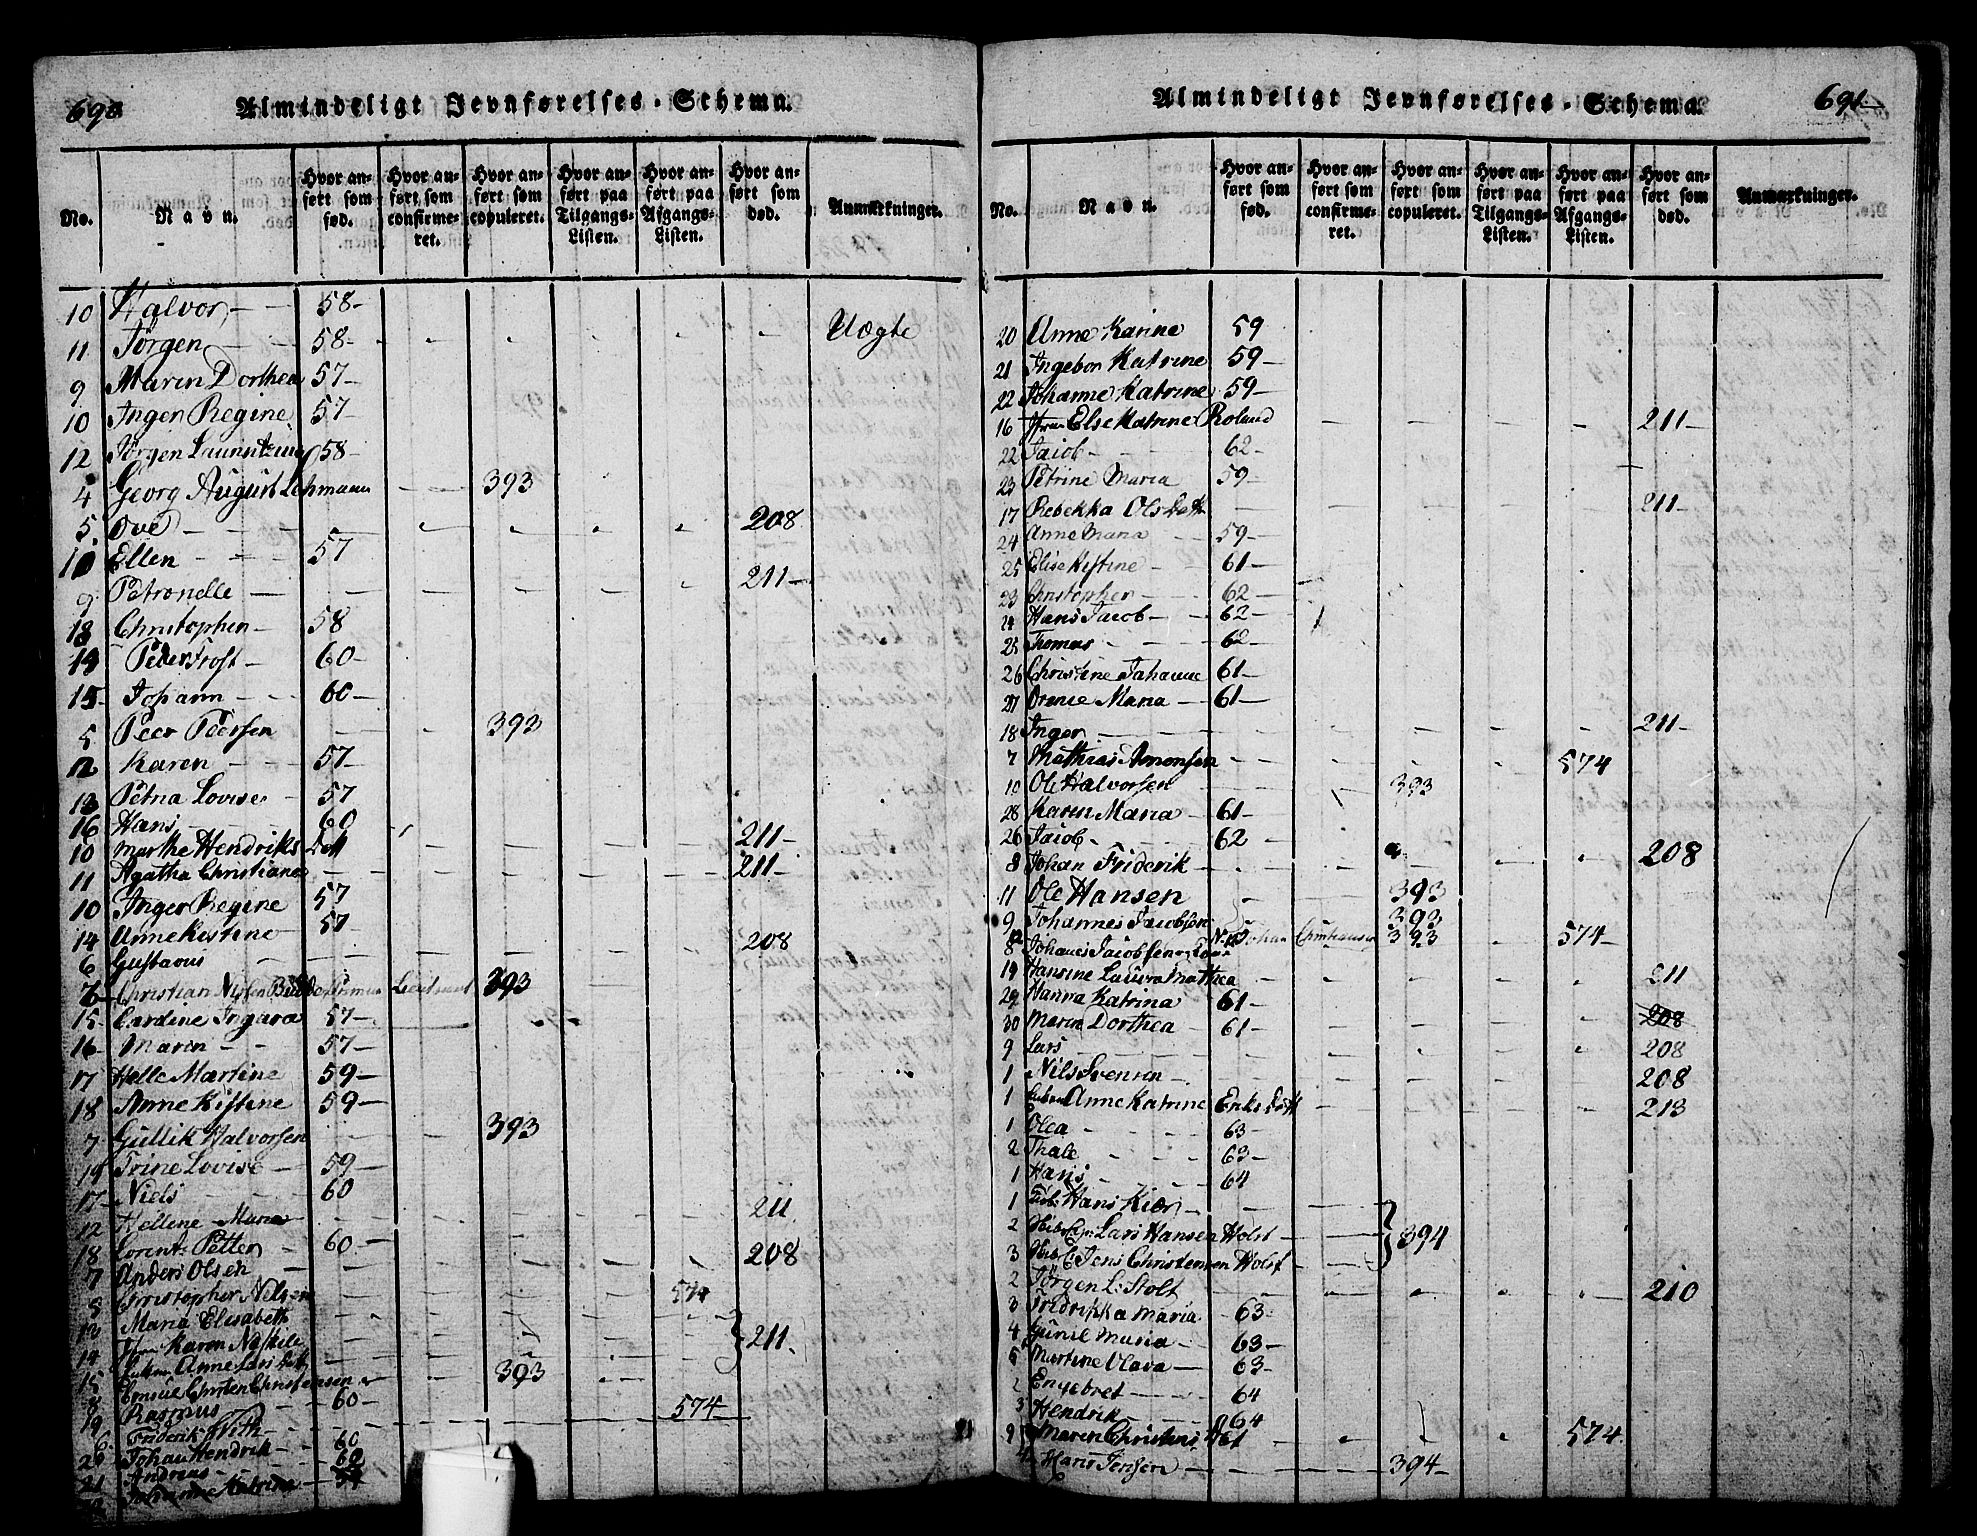 690.
Almindeligt Jevnførelses-Schema.
No. Navn. Hvor anført som fød. Hvor anført som confirmeret. Hvor anført som copuleret. Hvor anført paa Tilgangs-Listen. Hvor anført paa Afgangs-Listen. Hvor anført som død. Anmærkninger.
10 Halvor 58
11 Jörgen 58 Uægte
9 Maren Dorthea 57
10 Inger Regine 57
12 Jörgen 58
4 Georg August Lehmann 393
5 Ove 208
Ellen 57
9 Petronelle 211
13 Christopher 58
14 Peder Trost 60
15 Johann 60
5 Peer Peersen 393
12 Karen 57
13 Petria Lovise 57
16 Hans 60
10 Marthe Hendriks Datt 211
11 Agatha Christiane 211
10 Inger Regine 57
14 Anne Kistine 57
6 Gustavus 208
Christian Lieutnant 393
15 Cardine Ingara 57
16 Maren 57
17 Helle Martine 59
18 Anne Kistine 59
7 Gullik Halvorsen 393
19 Trine Lovise 59
17 Niels 60
12 Hellene Maria 211
18 Lorents Petter 60
7 Anders Olsen 208
8 Christopher Nilsen 574
13 Maria Elisabeth
14 Karen
15 Anne Lars Datt 211
8 Christen Christensen 393
19 Rasmus 60
6 Friderik With 574
20 Johan Hendrik 60
21 Andreas 60
Johanne Katrine
691
Almindeligt Jevnførelses-Schema.
No. Navn. Hvor anført som fød. Hvor anført som confirmeret. Hvor anført som copuleret. Hvor anført paa Tilgangs-Listen. Hvor anført paa Afgangs-Listen. Hvor anført som død. Anmærkninger.
20 Anne Karine 59
21 Ingebor Katrine 59
22 Johanne Katrine 59
16 Else Katrine Roland 211
22 Jacob 62
23 Petrine Maria 59
17 Rebekka Ols Datt 211
24 Anne Maria 59
25 Elise Kistine 61
23 Christopher 62
24 Hans Jacob 62
25 Thomas 62
26 Christine Johanne 61
27 Maria 61
18 Inger 211
7 Mathias Amonsen 574
10 Ole Halvorsen 393
28 Karen Maria 61
26 Jacob 62
8 Johan Friderik 208
11 Ole Hansen 393
9 Johannes Jacobsen 393
8 Johannes Jacobsen 393 574
19 Hansine Laura Mathea 211
29 Hanna Katrina 61
30 Maren Dorthea 61 208
9 Lars 208
1 Nils Svensen 208
1 Anne Katrine Eriks Datt 213
1 Olea 63
2 Thale 63
1 Hans 64
1 Hans Kiær
2 Lars Hansen Holst 394
3 Jens Christensen Holst
2 Jørgen L: Stolt 210
3 Fridrikka Maria 63
4 Gunil Maria 63
5 Martine Olava 63
2 Engebret 64
3 Hendrik 64
9 Maren Christens D 61 574
4 Hans Jensen 394